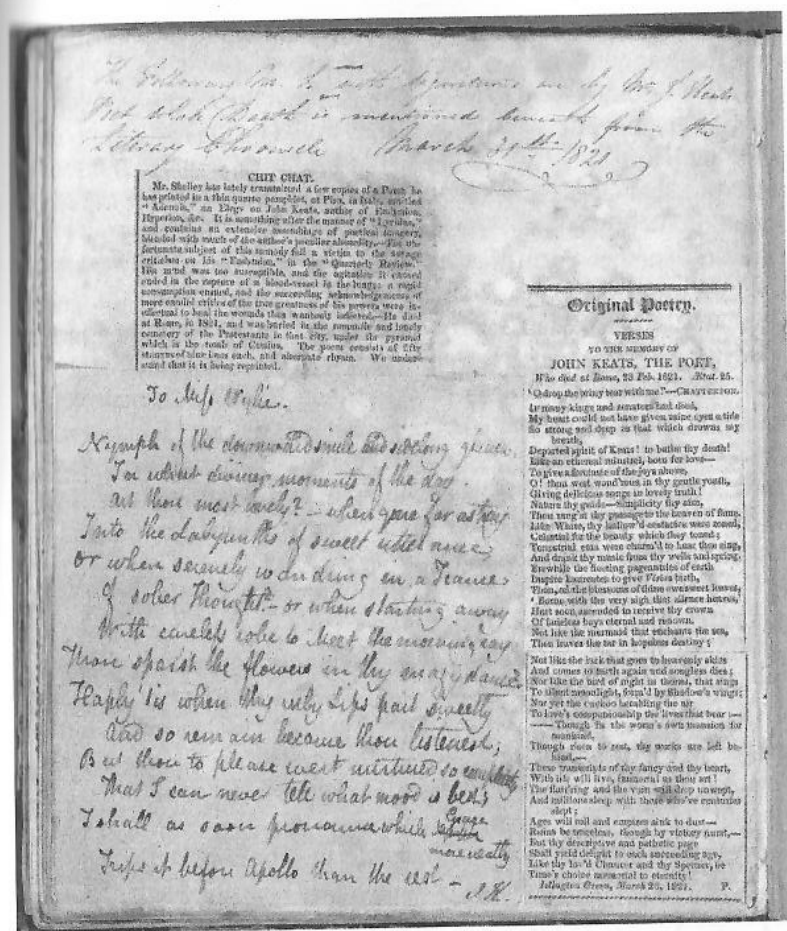 The following Poe
with signatures are by Mr J. Keats
Poet whose Death is mentioned beneath from the
Literary Chronicle March 31th 1821
CHIT CHAT.
Mr. Shelley has lately transmitted a few copies of a Poem he
has printed in a thin quarto pamphlet, at Pisa, in Italy, entitled
"Adonais," an Elegy on John Keats, author of Endymion,
Hyperion, &c. It is something after the manner of "Lycidas,"
and contains an extensive assemblage of poetical imagery,
blended with much of the author's peculiar absurdity.—The un-
fortunate subject of this monody fell a victim to the savage
criticism on his "Endymion," in the "Quarterly Review."
His mind was too susceptible, and the agitation it caused
ended in the rupture of a blood-vessel in the lungs; a rapid
consumption ensued, and the succeeding acknowledgements of
more candid critics of the true greatness of his powers were in-
effectual to heal the wounds thus wantonly inflicted.—He died
at Rome, in 1821, and was buried in the romantic and lonely
cemetery of the Protestants in that city, under the pyramid
which is the tomb of Cestius. The poem consists of fifty
stanzas of nine lines each, and alternate rhyme. We under-
stand that it is being reprinted.
To Miss Wylie.
Nymph of the downward smile and sidelong glance,
In what diviner moments of the day
art thou most lovely? – when gone far astray
Into the labyrinths of sweet utterance
Or when serenely wandring in a Trance
Of sober Thought – or when starting away
With careless robe to meet the morning ray
Thou sparst the flowers in thy mazy dance
Haply tis when thy ruby Lips part sweetly
And so remain because thou listenest;
But thou to please wert nurtured so completely
That I can never tell what mood is best;
I shall as soon pronounce which Grace
more neatly
Trips it before Apollo than the rest –
J.K.
Original Poetry.
VERSES
TO THE MEMORY OF
JOHN KEATS, THE POET,
Who died at Rome, 23 Feb. 1821. Ætat. 25.
'O drop the briny tear with me'—CHATTERTON.
If many kings and senators had died,
My heart could not have given mine eyes a tide
So strong and deep as that which drowns my
breath,
Departed spirit of Keats! to bathe thy death!
Like an ethereal minstrel, born for love—
To give a foretaste of the joys above,
O! thou wert wand'ring in thy gentle youth,
Giving delicious songs in lovely truth!
Nature thy guide—Simplicity thy aim,
Thou rang'st thy passage to the heaven of fame.
Like White, thy hallow'd ecstacies were toned,
Celestial for the beauty which they
Terrestrial ears were charm'd to hear thee sing,
And drank thy music from thy wells and spring.
Erewhile the fleeting pageantries of earth
Inspire Laureates to give Vision birth,
Thou, as the blossoms of thine own sweet leaves,
'Borne with the very sigh that silence heaves,'
Hast soon ascended to receive thy crown
Of fadeless bays eternal and renown.
Not like the mermaid that enchants the sea,
Then leaves the ear in hopeless destiny;
Not like the lark that goes to heavenly skies
And comes to earth again and songless dies;
Nor like the bird of night in thorns, that sings
To silent moonlight, form'd by Shadow's wings;
Nor yet the cuckoo breaking the air
To love's companionship the lives that bear :—
—Though in the worm's own mansion for
mankind,
Though risen to rest, thy works are left be-
hind,—
These transcripts of thy fancy and thy heart,
With life will live, immortal as thou art!
The flatt'ring and the vain will drop unwept,
And millions sleep with those who've centuries
slept;
Ages will roll and empires sink to dust—
Ruins be voiceless, though by victory nurst,—
But thy descriptive and pathetic page
Shall yield delight to each succeeding age,
Like thy lov'd Chaucer and thy Spenser, be
Time's choice memorial to eternity!
Islington Green, March 26, 1821. P.